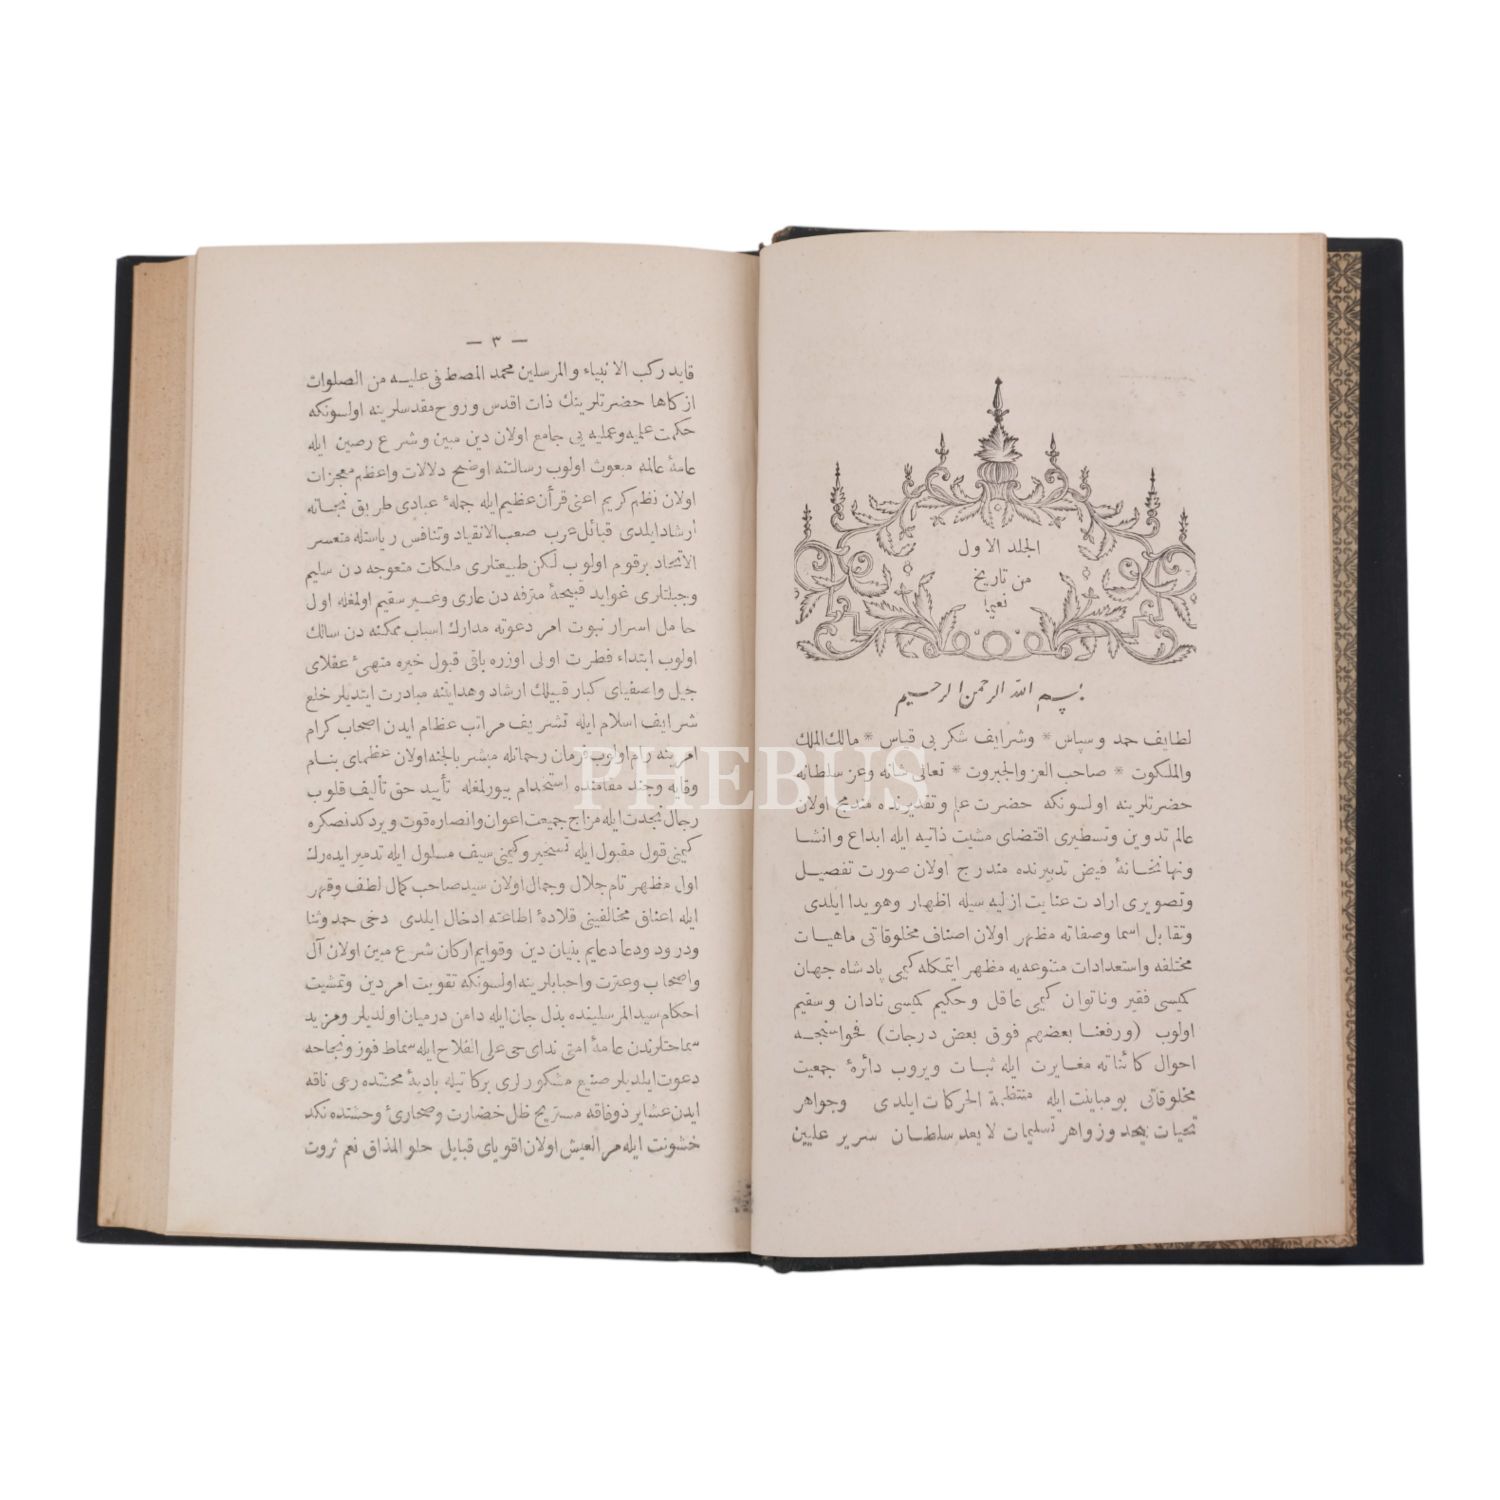 الجلد الاول
من تاريخ
نعيما
بسم الله الرحمن الرحيم
لطايف حمد وسپاس * وشرايف شكر بى قياس * مالك الملك
والملكوت * صاحب العز والجبروت * تعالى شانه وعز سلطانه
حضرتلرينه اولسونكه حضرت علم وتقديرنده مندمج اولان
عالم تدوين وتسطيرى اقتضاى مشيت ذاتيه ايله ابداع وانشا
ونهانخانهٔ فيض تدبيرنده مندرج اولان صورت تفصيل
وتصويرى ارادت عنايت ازليه سيله اظهار وهويدا ايلدى
وتقابل اسما وصفاته مظهر اولان اصناف مخلوقاتى ماهيات
مختلفه واستعدادات متنوعه يه مظهر ايتمكله كيمى پادشاه جهان
كيمسى فقير وناتوان كيمى عاقل وحكيم كيمسى نادان وسقيم
اولوب (ورفعنا بعضهم فوق بعض درجات) فحواسنجه
احوال كائناته مغايرت ايله ثبات ويروب دائرهٔ جمعيت
مخلوقاتى بو مباينت ايله منتظمة الحركات ايلدى وجواهر
تحيات بيحد وزواهر تسليمات لا يعد سلطان سرير عليين
— ٣ —
قايد ركب الانبياء والمرسلين محمد المصطفى عليه من الصلوات
ازكاها حضرتلرينك ذات اقدس وروح مقدسلرينه اولسونكه
حكمت علميه وعمليه يى جامع اولان دين مبين وشرع رصين ايله
عامهٔ عالمه مبعوث اولوب رسالتنه اوضح دلالات واعظم معجزات
اولان نظم كريم اعنى قرأن عظيم ايله جملهٔ عبادى طريق نجاته
ارشاد ايلدى قبائل عرب صعب الانقياد وتنافس رياستله متعسر
الاتحاد برقوم اولوب لكن طبيعتلرى ملكات متعوجه دن سليم
وجبلتلرى عوايد قبيحهٔ مترفه دن عارى وغير سقيم اولمغله اول
حامل اسرار نبوت امر دعوته مدارك اسباب ممكنه دن سالك
اولوب ابتداء فطرت اولى اوزره باقى قبول خيره متهيئ عقلاى
جيل واصفياى كبار قبيلك ارشاد وهدايتنه مبادرت ايتديلر خلع
شرايف اسلام ايله تشريف مراتب عظام ايدن اصحاب كرام
امرينه رام اولوب فرمان رحمانله مبشر بالجنه اولان عظماى بنام
وقايه وجند مقامنده استخدام بيورلمغله تأييد حق تأليف قلوب
رجال نجدت ايله مزاج جمعيت اعوان وانصاره قوت ويردكدنصكره
كيمنى قول مقبول ايله تسخير وكيمنى سيف مسلول ايله تدمير ايده رك
اول مظهر تام جلال وجمال اولان سيد صاحب كمال لطف وقهر
ايله اعناق مخالفينى قلادهٔ اطاعته ادخال ايلدى دخى حمد وثنا
ودرود ودعا دعايم بنيان دين وقوايم اركان شرع مبين اولان آل
واصحاب وعترت واحبابلرينه اولسونكه تقويت امر دين وتمشيت
احكام سيد المرسلينده بذل جان ايله دامن درميان اولديلر ومزيد
سماحتلرندن عامهٔ امتى نداى حى على الفلاح ايله سماط فوز ونجاحه
دعوت ايلديلر صنيع مشكورلرى بركاتيله باديهٔ محنتده رعى ناقه
ايدن عشاير ذوفاقه مستريح ظل خضارت وصحارئ وحشتده نكد
خشونت ايله مر العيش اولان اقوياى قبايل حلو المذاق نعم ثروت
PHEBUS